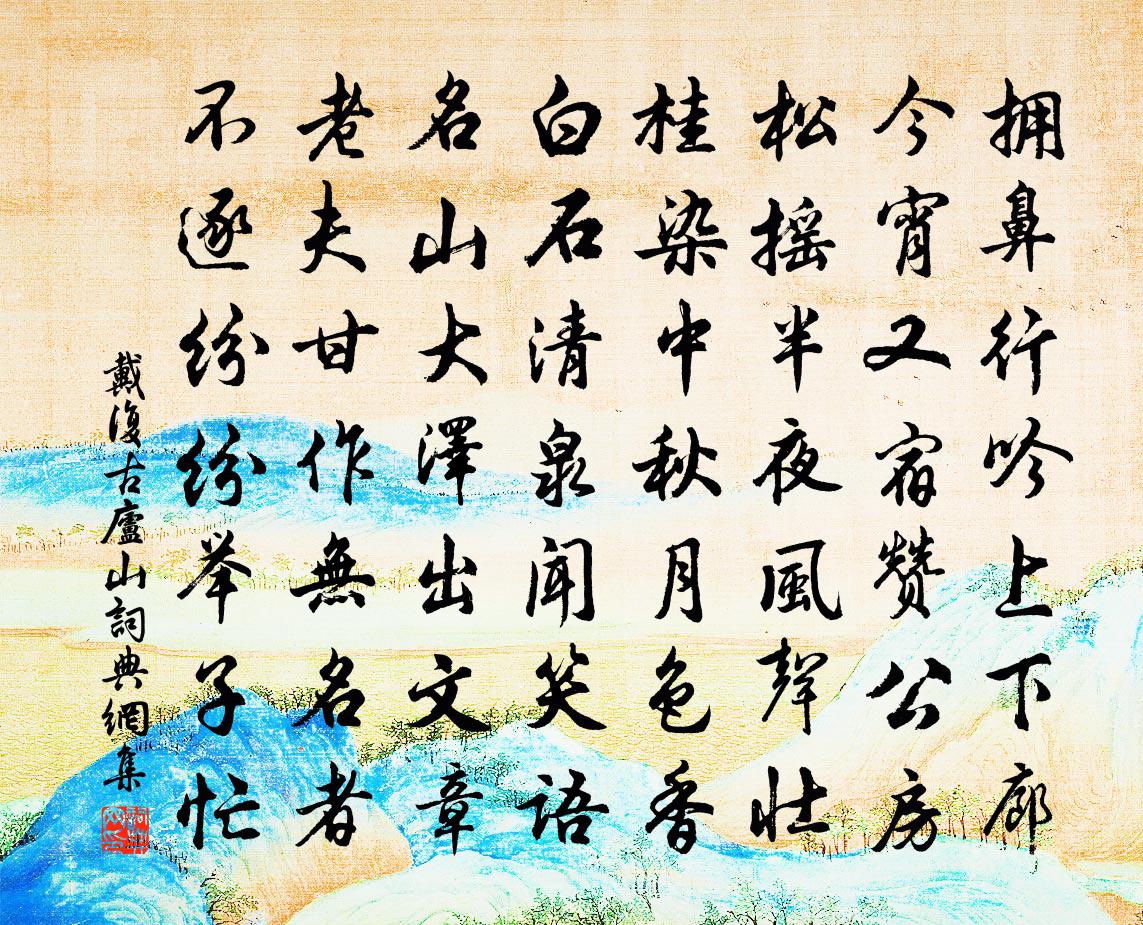 拥鼻行吟上下廊
今宵又宿赞公房
松摇半夜風聲壮
桂染中秋月色香
白石清泉闻笑语
名山大澤出文章
老夫甘作無名者
不逐纷纷举子忙
戴復古廬山詞典網集